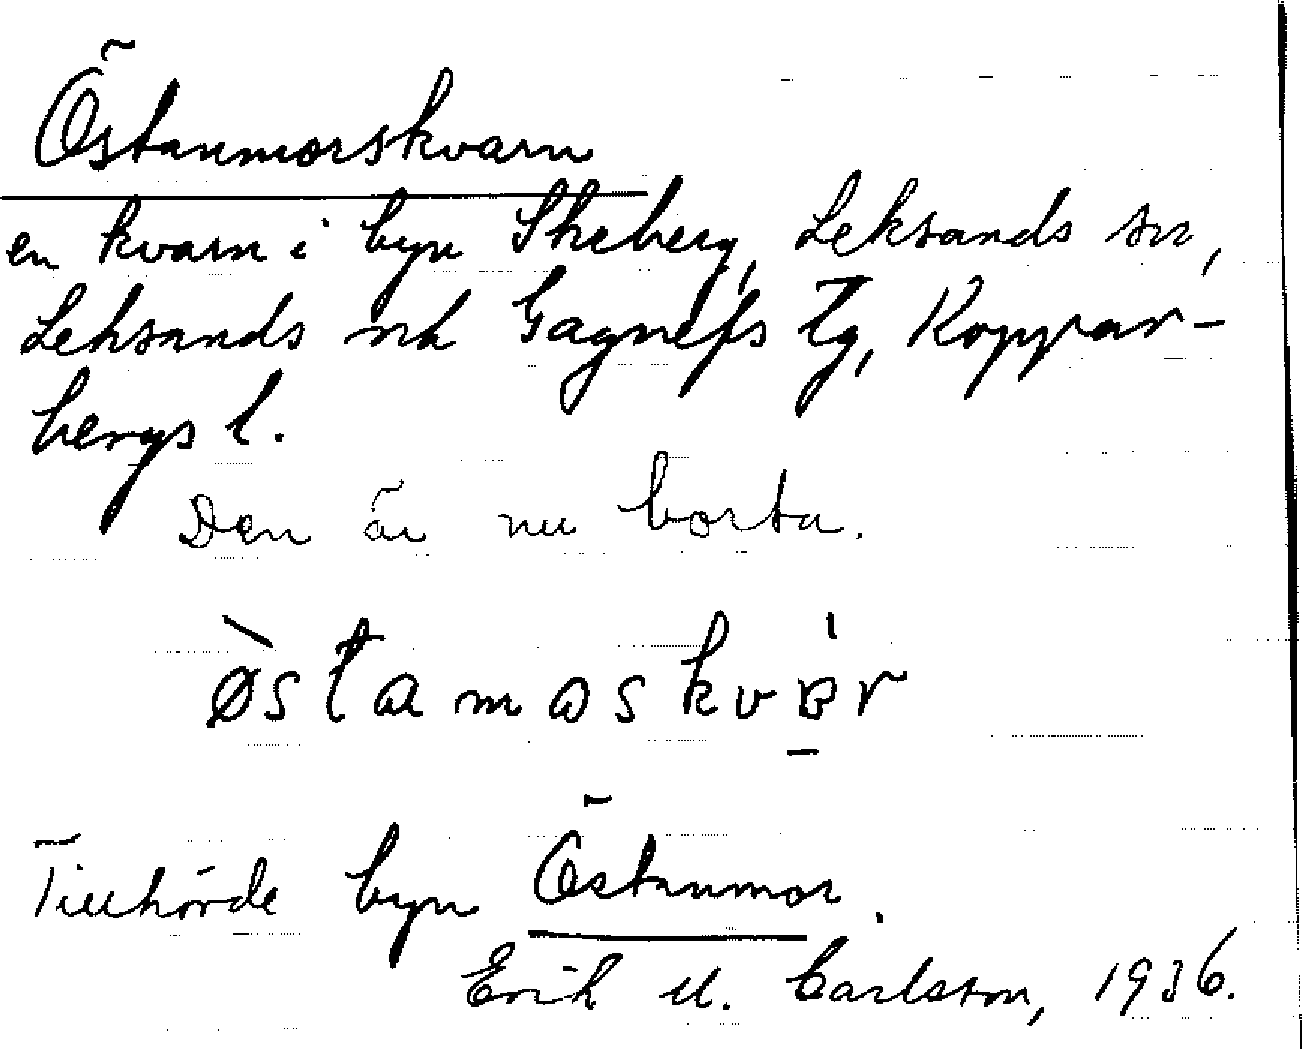 Östanmorskvarn
en kvarn i byn Skeberg, Leksands sn,
Leksands och Gagnefs tg, Koppar-
bergs l.
Den är nu borta.
Tillhörde byn Östanmor.
Erik M. Carlsson, 1936.